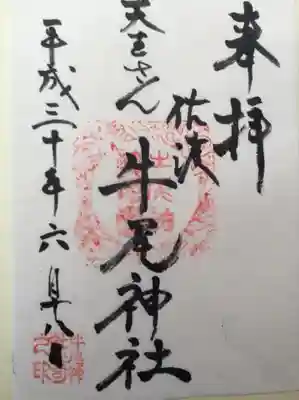 奉拝
佐渡
牛尾神社
天王さん
平成三十年六月十八日